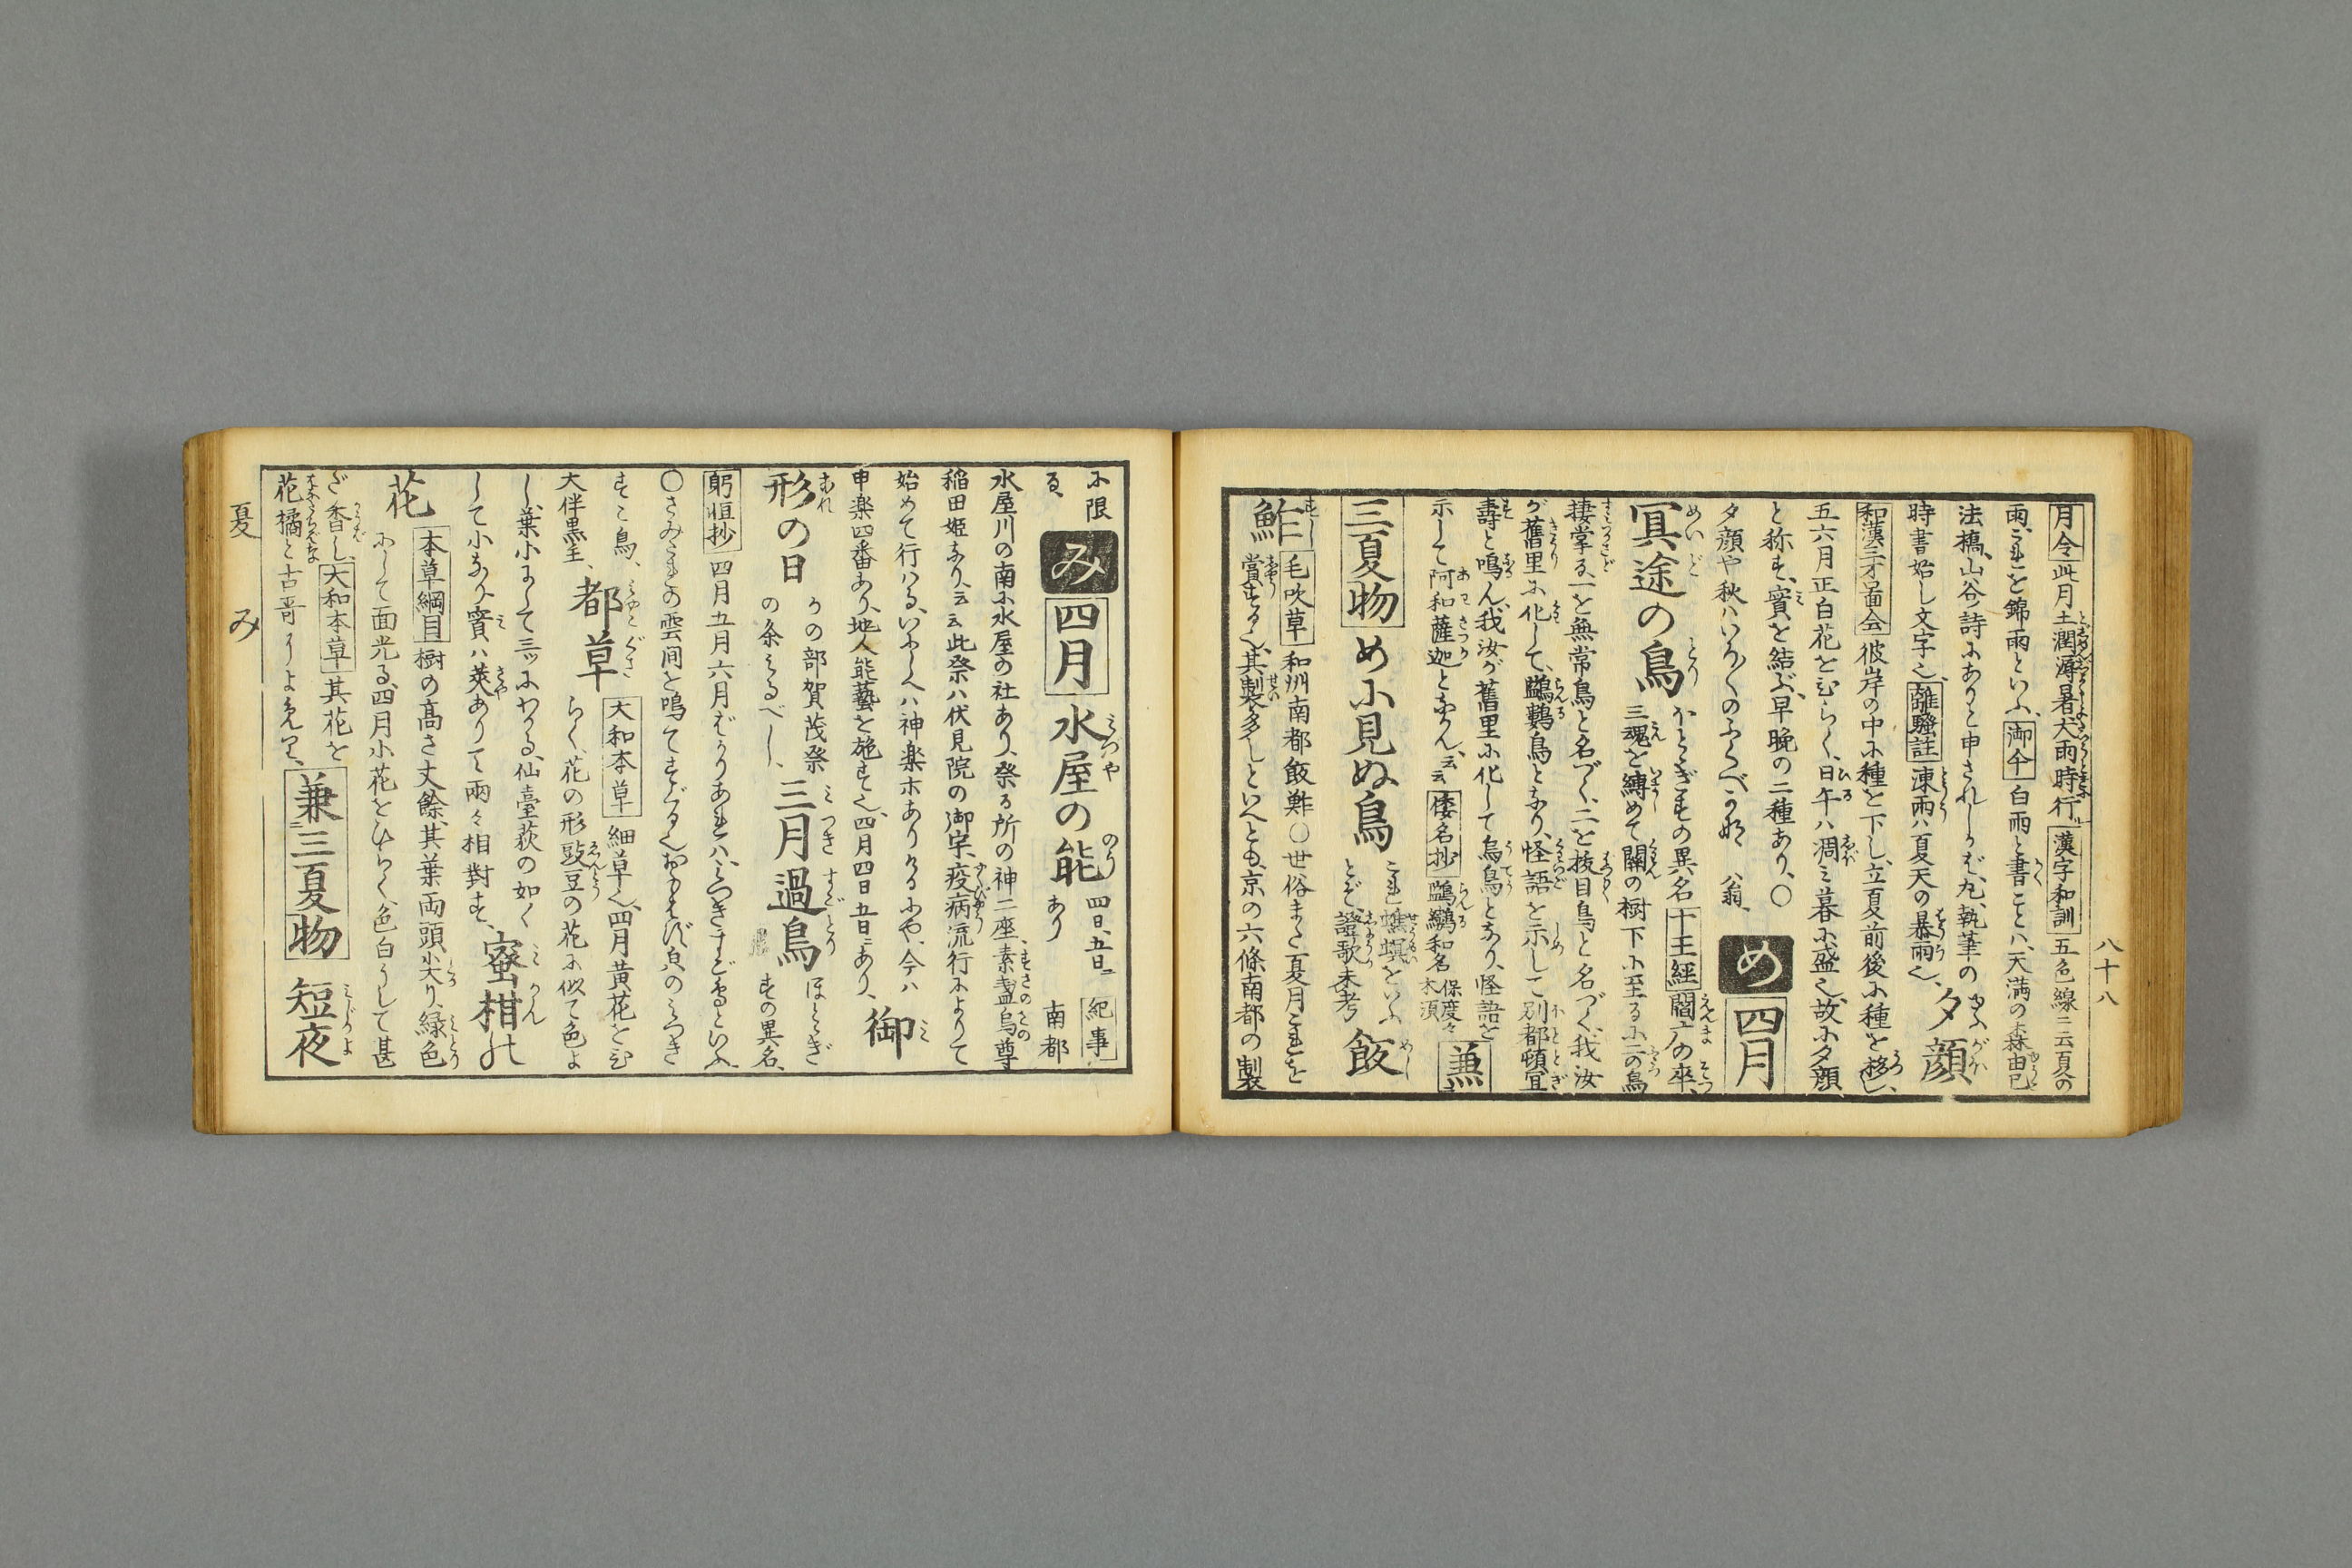 八十八
月令 此月土潤溽暑大雨時行 漢字和訓 五色線ニ云夏の
雨、これを錦雨といふ、御傘 白雨と書ことハ、天満の森由己
法橋、山谷詩にありと申されしかバ、丸、執筆の
時書始し文字也、離騒註 涷雨ハ夏天の暴雨也、夕顔
和漢三才啚会 彼岸の中に種を下し、立夏前後に種を移し、
五六月正白花をひらく、日午ハ凋ミ暮に盛也、故に夕顔
と称す、實を結ぶ、早晩の二種あり、〇
夕顔や秋ハいろ〳〵のふくべかな 翁、め 四月
冥途の鳥 ほとゝぎすの異名 十王經 閻广の卒、
三魂を縛めて關の樹下に至るに二の鳥
棲掌る、一を無常鳥と名づく、二を抜目鳥と名づく、我汝
が舊里に化して、鸋鷜鳥となり、怪語を示して別都頓宜
壽と鳴ん、我汝が舊里に化して烏鳥となり、怪語を
示して阿和薩迦となかん、云云 倭名抄 和名 保度々木須 兼
三夏物 めに見ぬ鳥 これ蟭螟をいふとぞ、證歌未考 飯
鮓 毛吹草 和州南都飯鮓〇世俗また夏月これを
賞する也、其製多しといへとも、京の六條南都の製
に限る、み 四月 水屋の能 四日、五日ニあり 紀事 南都
水屋川の南に水屋の社あり、祭る所の神二座、素盞烏尊
稲田姫なり、云云此祭ハ伏見院の御宇、疫病流行によりて
始めて行ハる、いにしへハ神楽ホありけるにや、今ハ
申楽四番あり、地人能藝を施す也、四月四日五日ニあり、御
形の日 かの部賀茂祭の条みるべし、三月過鳥 ほとゝぎすの異名、
躬恒抄 四月五月六月ばかりあれハ、みつきすごすといふ、
〇さみだれの雲间を鳴てすぐる也おもひ頁のみつき
すこ鳥、大伴黒主、都草 大和本草 細草也、四月黄花をひ
らく、花の形豌豆の花に似て色よ
し、葉小にして三ツにわかる、仙臺萩の如く
して小なり、實ハ莢ありて両々相對す、蜜柑の
花 本草綱目 樹の高さ丈餘、其葉両頭尖り、緑色
にして面光る、四月小花をひらく、色白うして甚
だ香し、大和本草 其花を
花橘と古哥によめり、兼三夏物 短夜
夏 み